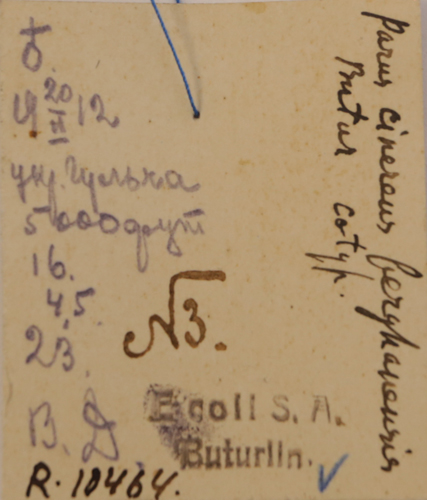 20
III 12
укр. Гульха
5000 фут
16.
45.
23.
В. Д
№3.
E coll S. A.
Buturlin.
R. 10464.
Parus cinereus ferghanensis
Butur cotyp.